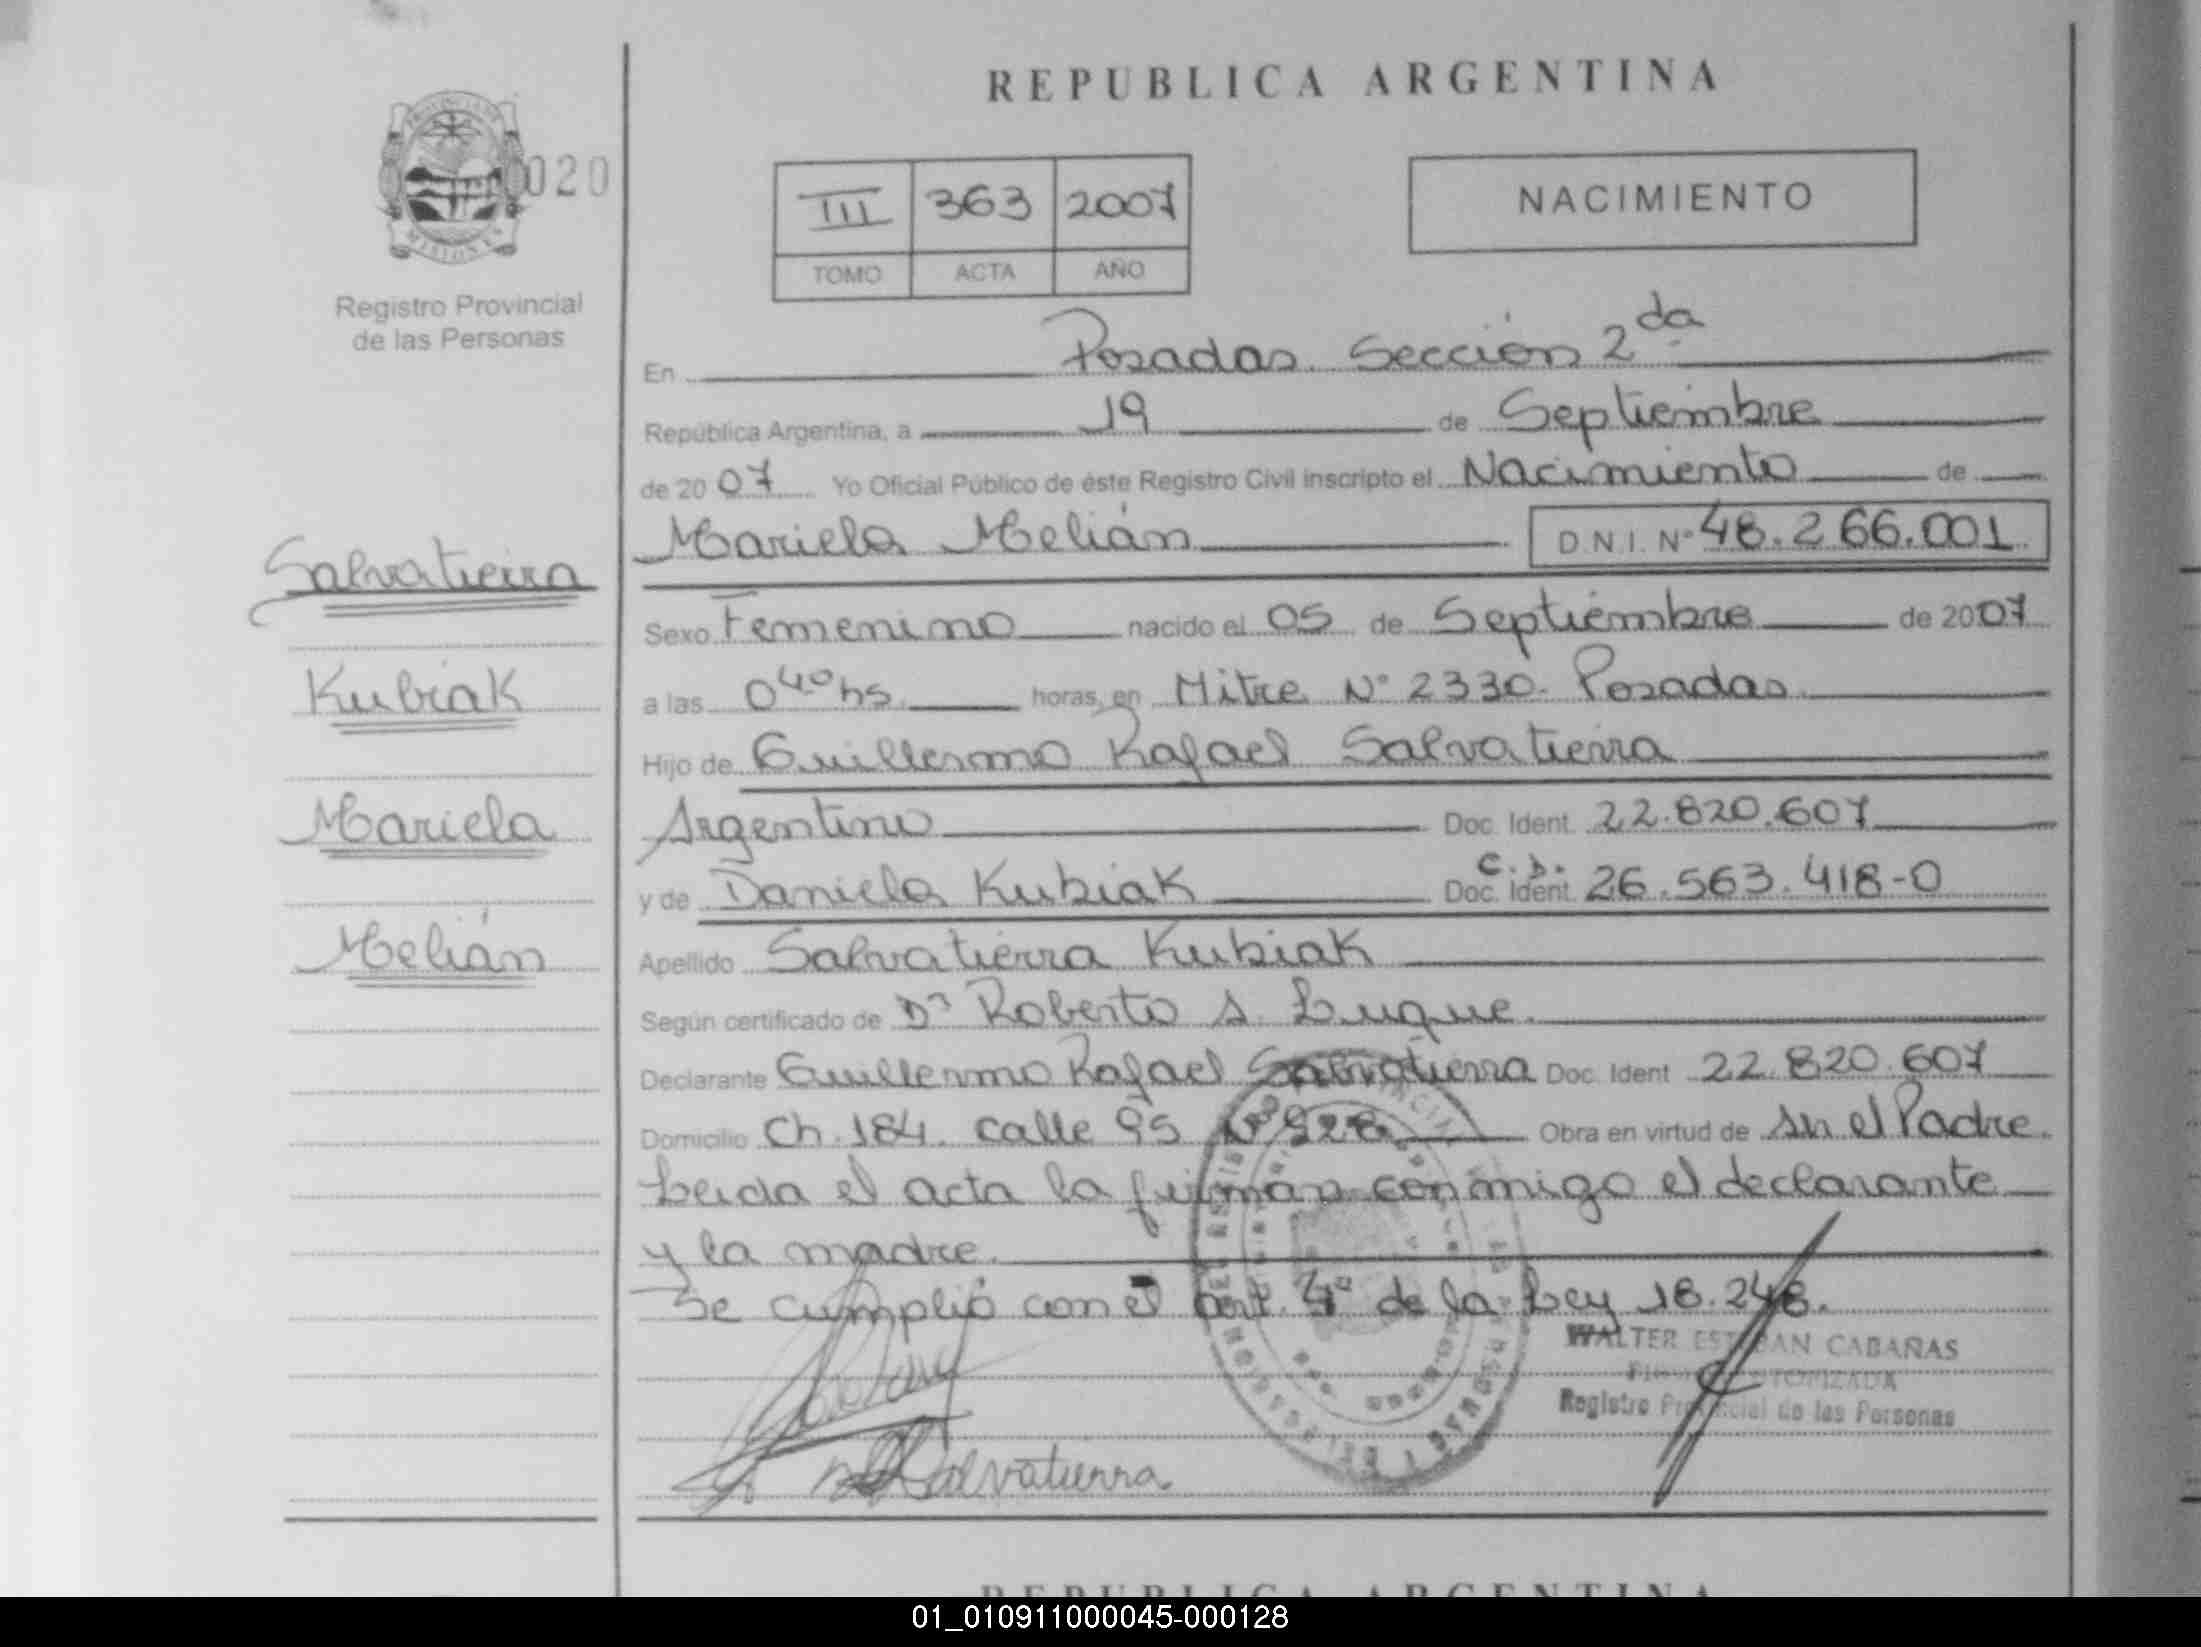 REPUBLICA ARGENTINA
PROVINCIA DE
MISIONES
020
Registro Provincial
de las Personas
III 363 2007
TOMO ACTA AÑO
NACIMIENTO
En Posadas. Sección 2da
República Argentina, a 19 de Septiembre
de 2007 Yo Oficial Público de éste Registro Civil inscripto el Nacimiento de
Mariela Melián D.N.I. Nº 48.266.001
Sexo Femenino nacido el 05 de Septiembre de 2007
a las 0 40 hs horas, en Mitre Nº 2330. Posadas.
Hijo de Guillermo Rafael Salvatierra
Argentino Doc. Ident. 22.820.607
y de Daniela Kubiak C.D. Doc. Ident. 26.563.418-0
Apellido Salvatierra Kubiak
Según certificado de Dr Roberto A. Luque.
Declarante Guillermo Rafael Salvatierra Doc. Ident 22.820.607
Domicilio Ch. 184. calle 95 Nº 928. Obra en virtud de ser el Padre.
Leida el acta la firman conmigo el declarante
y la madre.
Se cumplió con el art. 4º de la Ley 18.248.
WALTER ESTEBAN CABAÑAS
FIRMA AUTORIZADA
Registro Provincial de las Personas
Salvatierra
Salvatierra
Kubiak
Mariela
Melián
REPUBLICA ARGENTINA
01_010911000045-000128